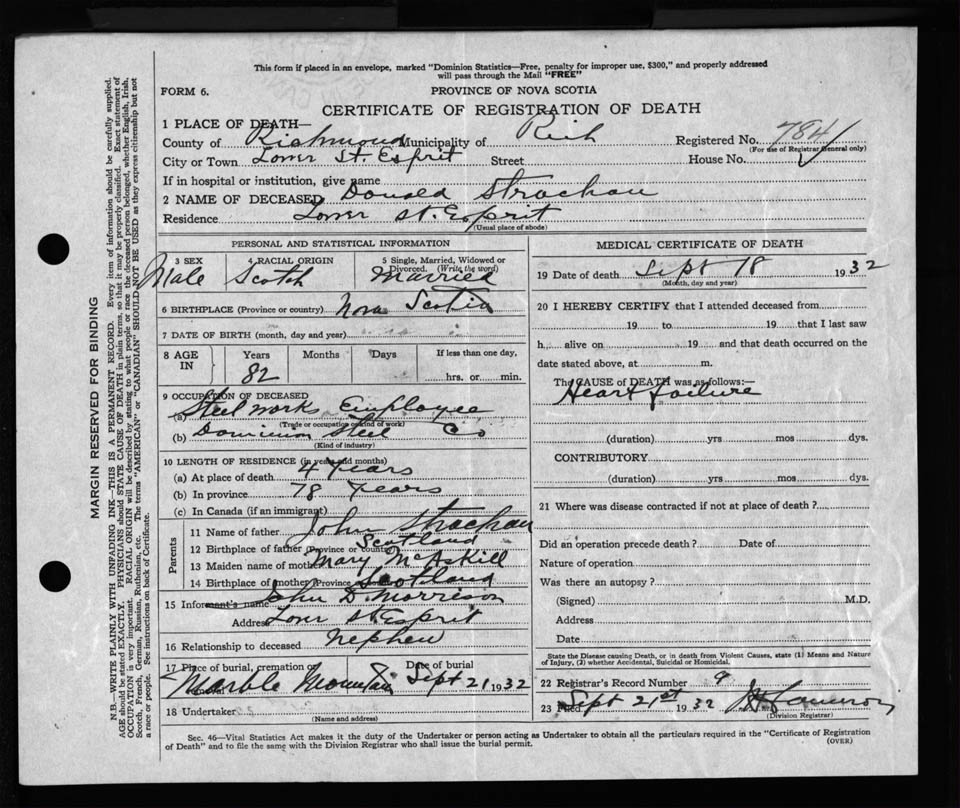 This form if placed in an envelope, marked "Dominion Statistics—Free, penalty for improper use, $300," and properly addressed
will pass through the Mail "FREE"
FORM 6. PROVINCE OF NOVA SCOTIA
CERTIFICATE OF REGISTRATION OF DEATH
1 PLACE OF DEATH—
County of Richmond Municipality of Rich Registered No. 784
(For use of Registrar General only)
City or Town Lower St. Esprit Street House No.
If in hospital or institution, give name
2 NAME OF DECEASED Donald Strachan
Residence Lower St. Esprit
(Usual place of abode)
PERSONAL AND STATISTICAL INFORMATION
3 SEX 4 RACIAL ORIGIN 5 Single, Married, Widowed or
Divorced. (Write the word)
Male Scotch Married
6 BIRTHPLACE (Province or country) Nova Scotia
7 DATE OF BIRTH (month, day and year)
8 AGE IN Years Months Days If less than one day,
82 hrs. or min.
9 OCCUPATION OF DECEASED
(a) Steel Works Employee
(Trade or occupation or kind of work)
(b) Dominion Steel Co
(Kind of industry)
10 LENGTH OF RESIDENCE (in years and months)
(a) At place of death 4 Years
(b) In province 78 Years
(c) In Canada (if an immigrant)
Parents
11 Name of father John Strachan
12 Birthplace of father (Province or country) Scotland
13 Maiden name of mother Mary McAskill
14 Birthplace of mother (Province Scotland
15 Informant's name John D. Morrison
Address Lower St Esprit
16 Relationship to deceased nephew
17 Place of burial, cremation Date of burial
Marble Mountain Sept 21 1932
18 Undertaker
(Name and address)
MEDICAL CERTIFICATE OF DEATH
19 Date of death Sept 18 1932
(Month, day and year)
20 I HEREBY CERTIFY that I attended deceased from
19 to 19 that I last saw
h alive on 19 and that death occurred on the
date stated above, at m.
The CAUSE of DEATH was as follows:—
Heart failure
(duration) yrs mos dys.
CONTRIBUTORY
(duration) yrs. mos. dys.
21 Where was disease contracted if not at place of death?
Did an operation precede death? Date of
Nature of operation
Was there an autopsy?
(Signed) M.D.
Address
Date
State the Disease causing Death, or in death from Violent Causes, state (1) Means and Nature
of Injury, (2) whether Accidental, Suicidal or Homicidal.
22 Registrar's Record Number 9
23 Sept 21st 1932
(Division Registrar)
Sec. 46—Vital Statistics Act makes it the duty of the Undertaker or person acting as Undertaker to obtain all the particulars required in the "Certificate of Registration
of Death" and to file the same with the Division Registrar who shall issue the burial permit. (OVER)
MARGIN RESERVED FOR BINDING
N.B.—WRITE PLAINLY WITH UNFADING INK—THIS IS A PERMANENT RECORD. Every item of information should be carefully supplied.
AGE should be stated EXACTLY. PHYSICIANS should STATE CAUSE OF DEATH in plain terms, so that it may be properly classified. Exact statement of
OCCUPATION is very important. RACIAL ORIGIN will be described by stating to what people or race the deceased person belonged, whether English, Irish,
Scotch, French, German, Russian, Ruthenian, etc. The terms "AMERICAN" or "CANADIAN" SHOULD NOT BE USED as they express citizenship but not
a race or people. See instructions on back of Certificate.